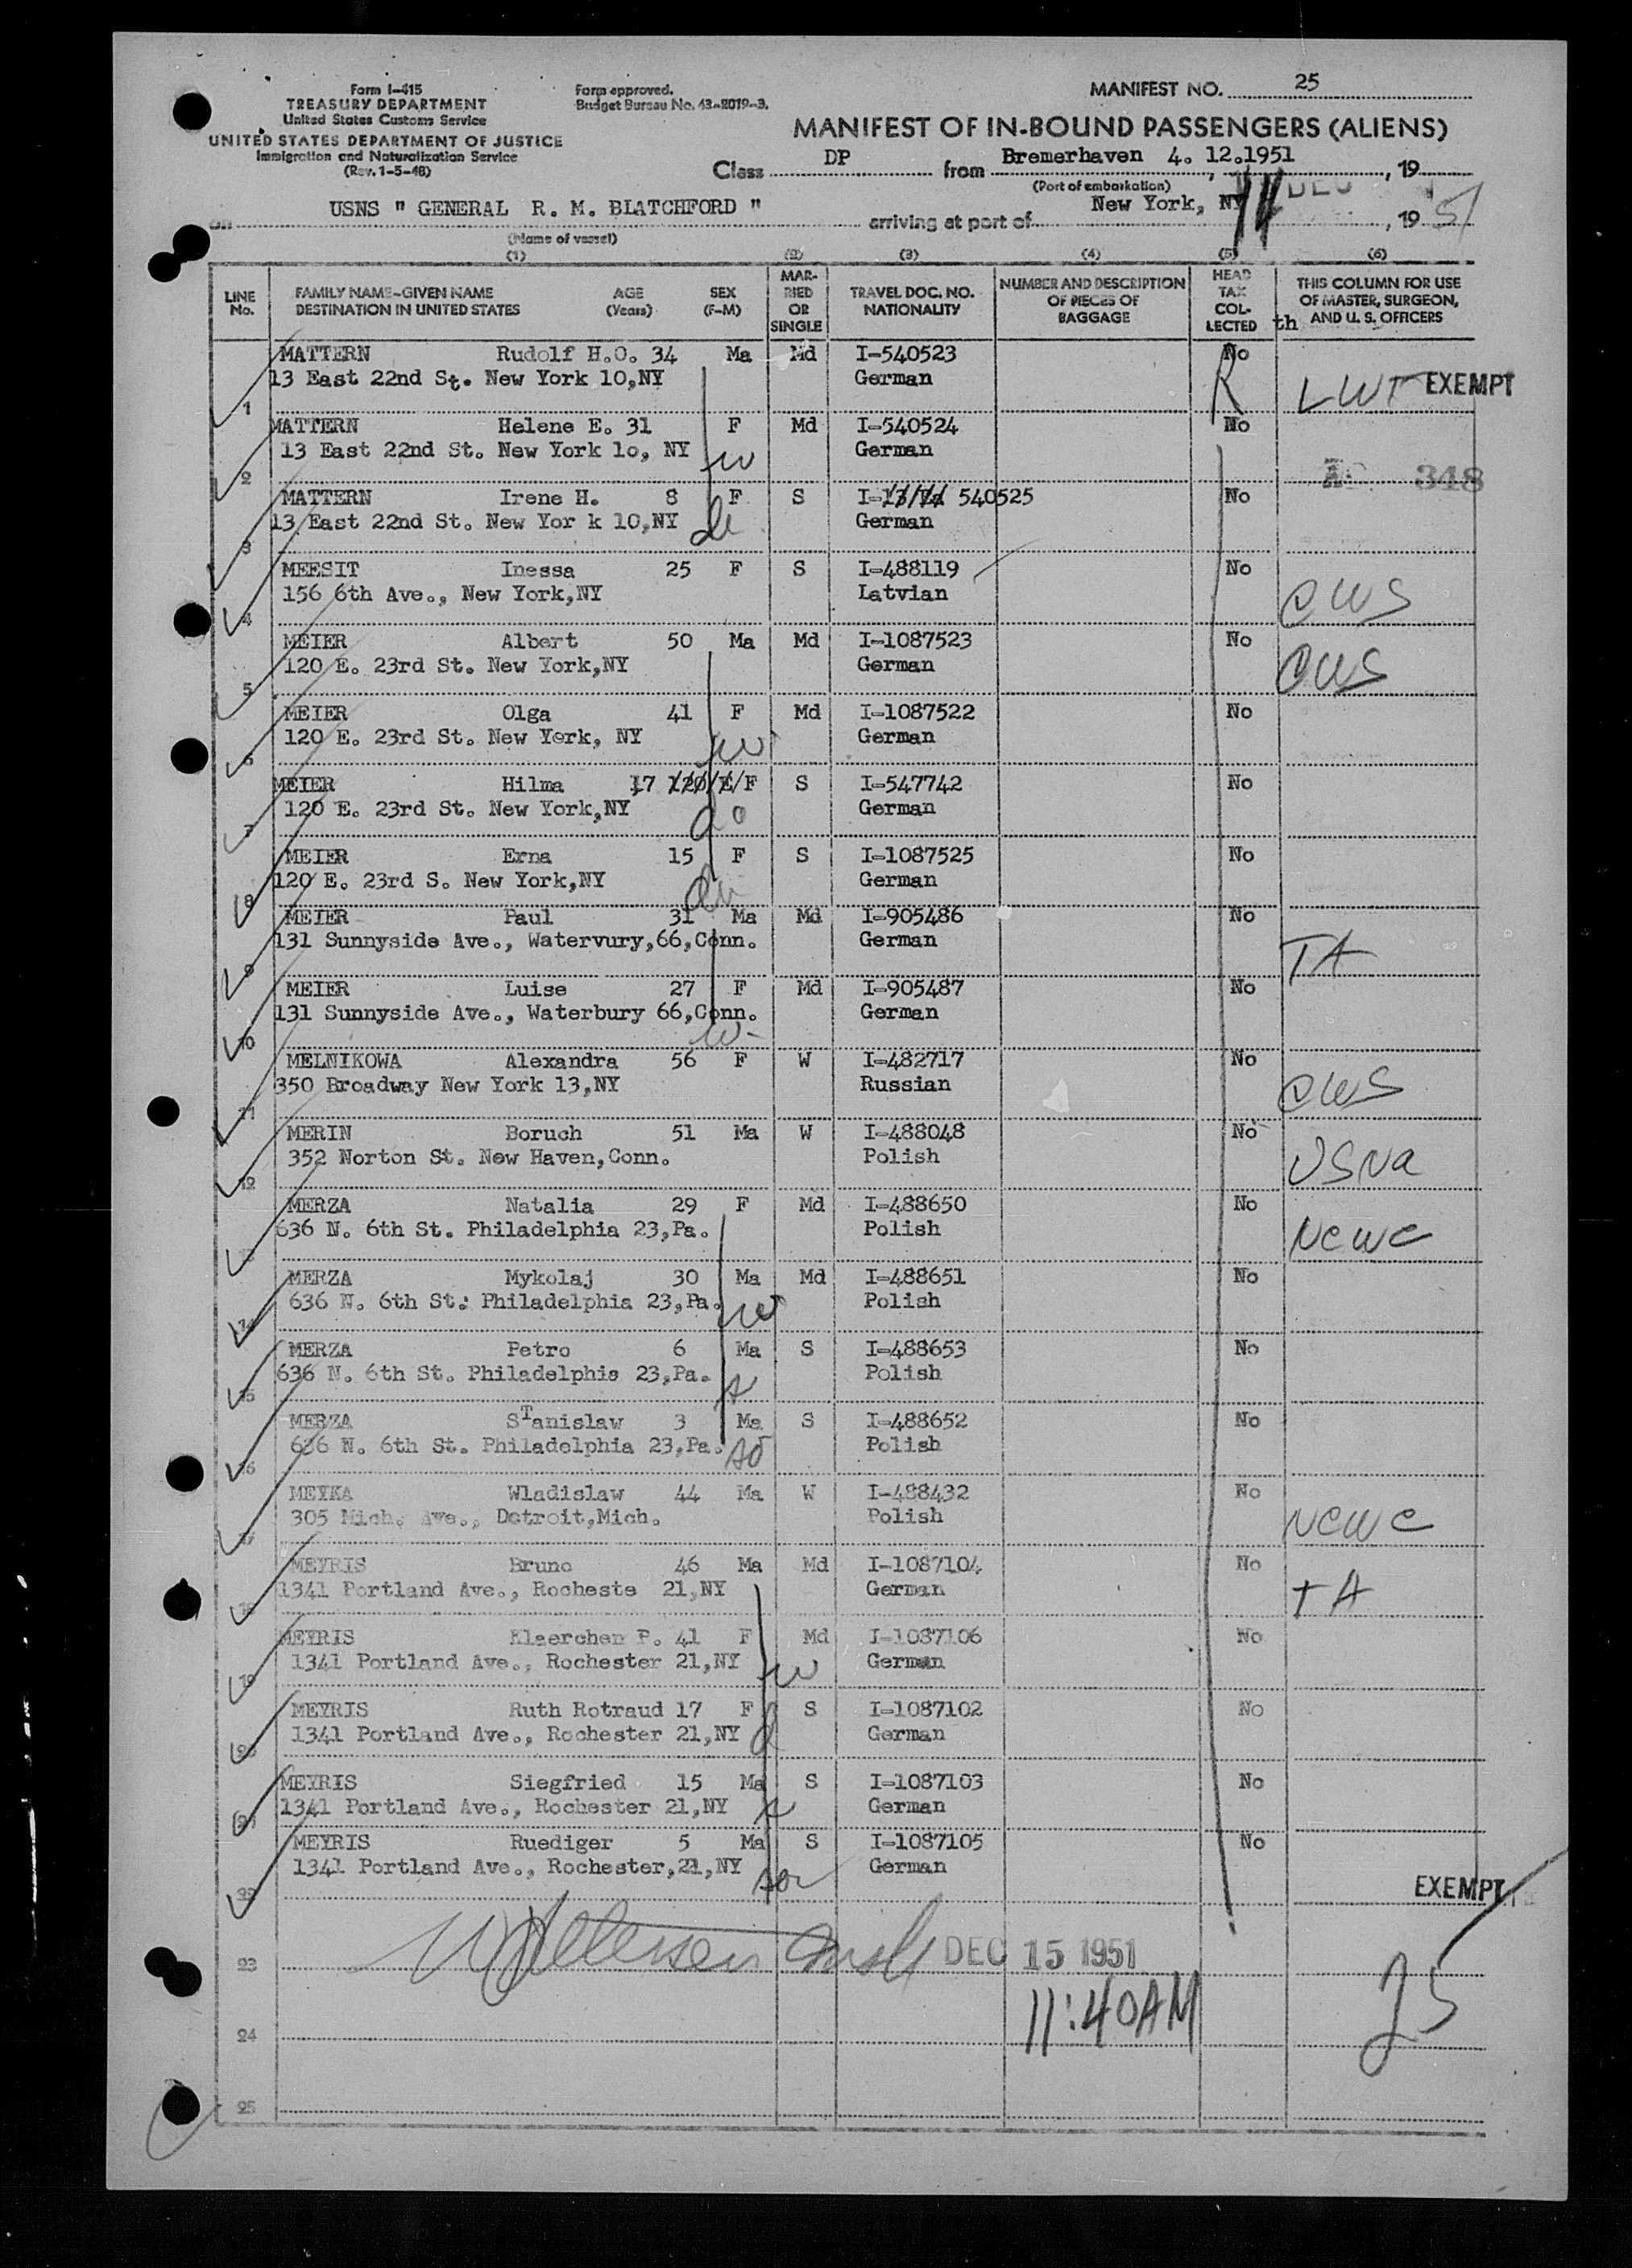 Form I-415
TREASURY DEPARTMENT
United States Customs Service
UNITED STATES DEPARTMENT OF JUSTICE
Immigration and Naturalization Service
(Rev. 1-5-48)
Form approved.
Budget Bureau No. 43-R019-3.
MANIFEST NO. 25
MANIFEST OF IN-BOUND PASSENGERS (ALIENS)
Class DP from Bremerhaven 4. 12.1951, 19
(Port of embarkation)
on USNS " GENERAL R. M. BLATCHFORD " arriving at port of New York, NY 14 DEC, 19 51
(Name of vessel)
(1) (2) (3) (4) (5) (6)
LINE No. FAMILY NAME-GIVEN NAME DESTINATION IN UNITED STATES AGE (Years) SEX (F-M) MARRIED OR SINGLE TRAVEL DOC. NO. NATIONALITY NUMBER AND DESCRIPTION OF PIECES OF BAGGAGE HEAD TAX COLLECTED THIS COLUMN FOR USE OF MASTER, SURGEON, AND U. S. OFFICERS
th
MATTERN Rudolf H.O. 34 Ma Md I-540523 No
1 13 East 22nd St. New York 10,NY German R LWF EXEMPT
MATTERN Helene E. 31 F Md I-540524 No
2 13 East 22nd St. New York lo, NY w German 348
MATTERN Irene H. 8 F S I- 540525 No
3 13 East 22nd St. New Yor k 10,NY German
MEESIT Inessa 25 F S I-488119 No
4 156 6th Ave., New York,NY Latvian CWS
MEIER Albert 50 Ma Md I-1087523 No
5 120 E. 23rd St. New York,NY German CWS
MEIER Olga 41 F Md I-1087522 No
6 120 E. 23rd St. New York, NY w German
MEIER Hilma 17 F S I-547742 No
7 120 E. 23rd St. New York,NY do German
MEIER Erna 15 F S I-1087525 No
8 120 E. 23rd S. New York,NY German
MEIER Paul 31 Ma Md I-905486 No
9 131 Sunnyside Ave., Watervury,66,Conn. German TA
MEIER Luise 27 F Md I-905487 No
10 131 Sunnyside Ave., Waterbury 66,Conn. w German
MELNIKOWA Alexandra 56 F W I-482717 No
11 350 Broadway New York 13,NY Russian CWS
MERIN Boruch 51 Ma W I-488048 No
12 352 Norton St. New Haven,Conn. Polish USNa
MERZA Natalia 29 F Md I-488650 No
13 636 N. 6th St. Philadelphia 23,Pa. Polish NCWC
MERZA Mykolaj 30 Ma Md I-488651 No
14 636 N. 6th St. Philadelphia 23,Pa. w Polish
MERZA Petro 6 Ma S I-488653 No
15 636 N. 6th St. Philadelphis 23,Pa. s Polish
MERZA STanislaw 3 Ma S I-488652 No
16 636 N. 6th St. Philadelphia 23,Pa. so Polish
MEYKA Wladislaw 44 Ma W I-488432 No
17 305 Mich. Ave., Detroit,Mich. Polish NCWC
MEYRIS Bruno 46 Ma Md I-1087104 No
18 1341 Portland Ave., Rocheste 21,NY German TA
MEYRIS Klaerchen P. 41 F Md I-1087106 No
19 1341 Portland Ave., Rochester 21,NY w German
MEYRIS Ruth Rotraud 17 F S I-1087102 No
20 1341 Portland Ave., Rochester 21,NY d German
MEYRIS Siegfried 15 Ma S I-1087103 No
21 1341 Portland Ave., Rochester 21,NY s German
MEYRIS Ruediger 5 Ma S I-1087105 No
22 1341 Portland Ave., Rochester,21,NY son German
EXEMPT
23 DEC 15 1951
11:40AM 25
24
25